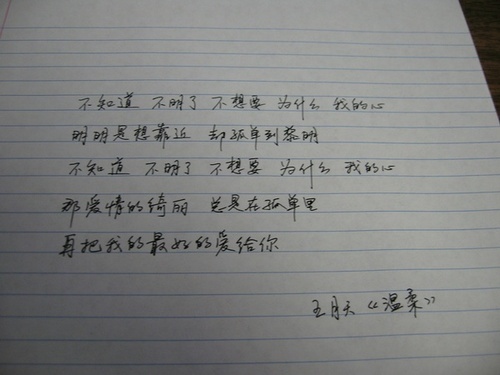 不知道 不明了 不想要 为什么 我的心
明明是想靠近 却孤单到黎明
不知道 不明了 不想要 为什么 我的心
那爱情的绮丽 总是在孤单里
再把我的最好的爱给你
五月天《温柔》